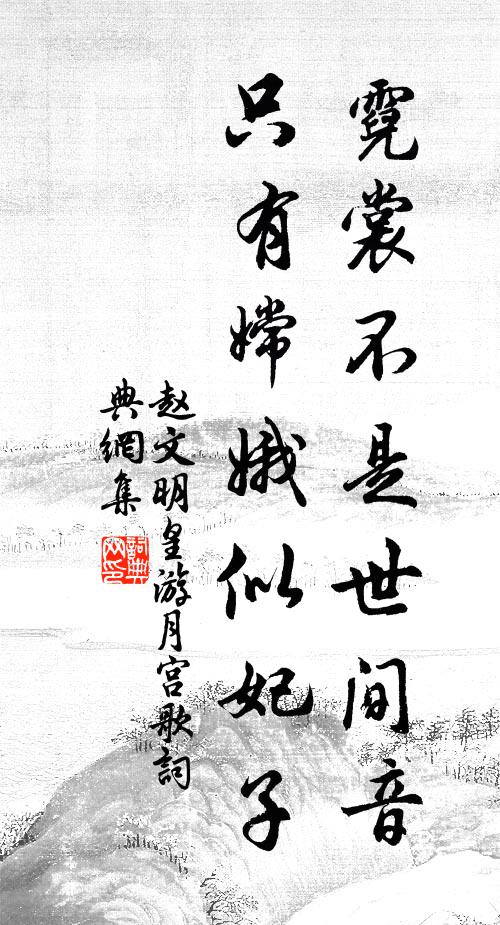 霓裳不是世间音
只有嫦娥似妃子
赵文明皇游月宫歌詞
典網集
詞典
网印